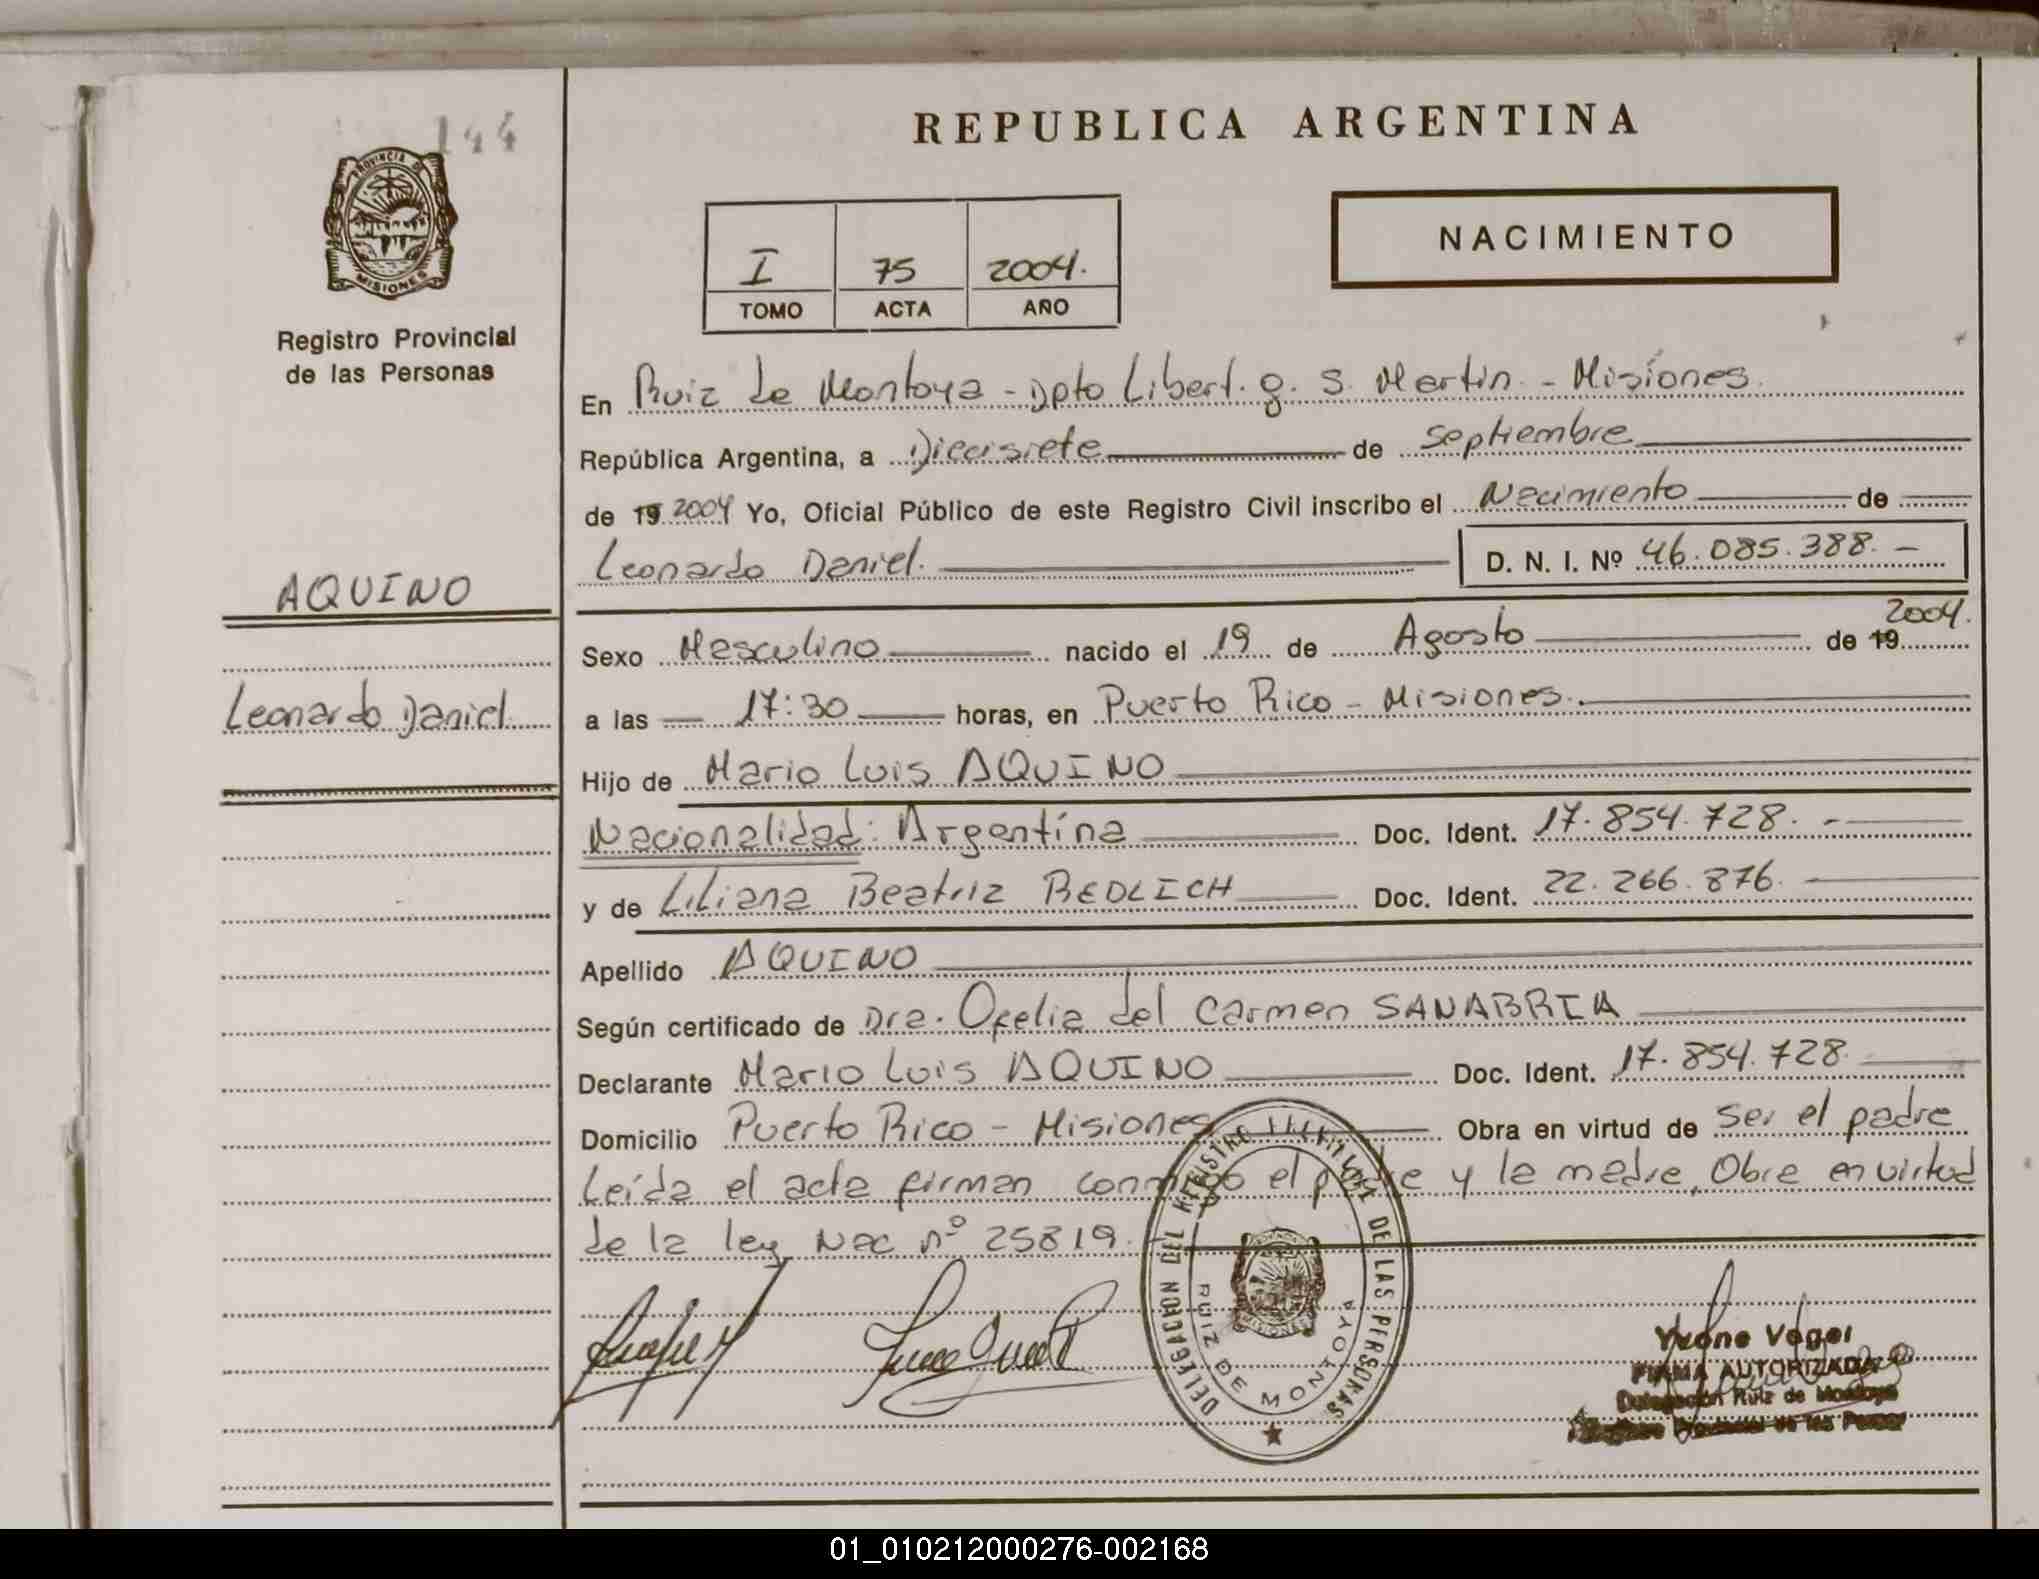 144
PROVINCIA DE
MISIONES
Registro Provincial
de las Personas
REPUBLICA ARGENTINA
NACIMIENTO
I 75 2004.
TOMO ACTA AÑO
En Ruiz de Montoya - Dpto Libert. g. S. Martin - Misiones.
República Argentina, a Diecisiete de Septiembre
de 19 2004 Yo, Oficial Público de este Registro Civil inscribo el Nacimiento de
Leonardo Daniel. D. N. I. Nº 46.085.388. -
AQUINO
Leonardo Daniel
2004.
Sexo Masculino nacido el 19 de Agosto de 19
a las 17:30 horas, en Puerto Rico - Misiones.
Hijo de Mario Luis AQUINO
Nacionalidad: Argentína Doc. Ident. 17.854.728. -
y de Liliana Beatriz REDLICH Doc. Ident. 22.266.876.
Apellido AQUINO
Según certificado de Dra. Ofelia del Carmen SANABRIA
Declarante Mario Luis AQUINO Doc. Ident. 17.854.728
Domicilio Puerto Rico - Misiones Obra en virtud de ser el padre
Leída el acta firman conmigo el padre y la madre. Obra en virtud
de la ley Nac nº 25819.
DELEGACION DEL REGISTRO DE LAS PERSONAS
RUIZ DE MONTOYA
MISIONES
Yvone Vogel
FIRMA AUTORIZADA
Delegación Ruiz de Montoya
01_010212000276-002168